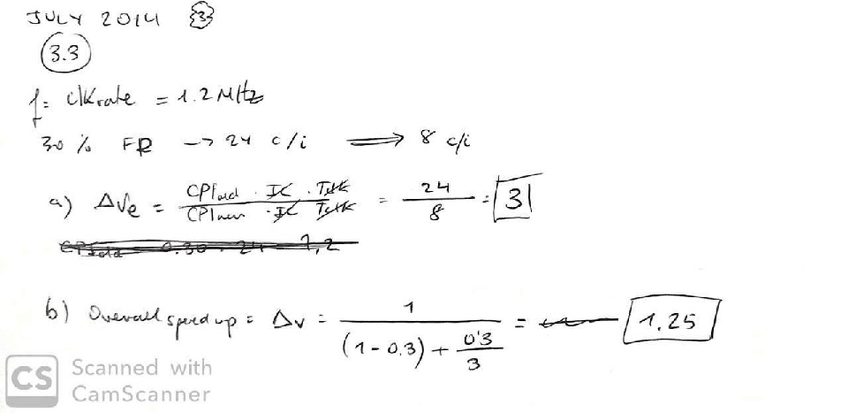 JULY 2014 3
3.3
f = clk rate = 1.2 MHz
30 % FP -> 24 c/i ⟹ 8 c/i
a) ΔVe = CPIold · IC · Tclk / CPInew · IC Tclk = 24 / 8 = 3
CPIold = 0.30 · 24 = 7,2
b) Overall speed up = Δv = 1 / (1 - 0.3) + 0'3 / 3 = 1.25
CS Scanned with
CamScanner